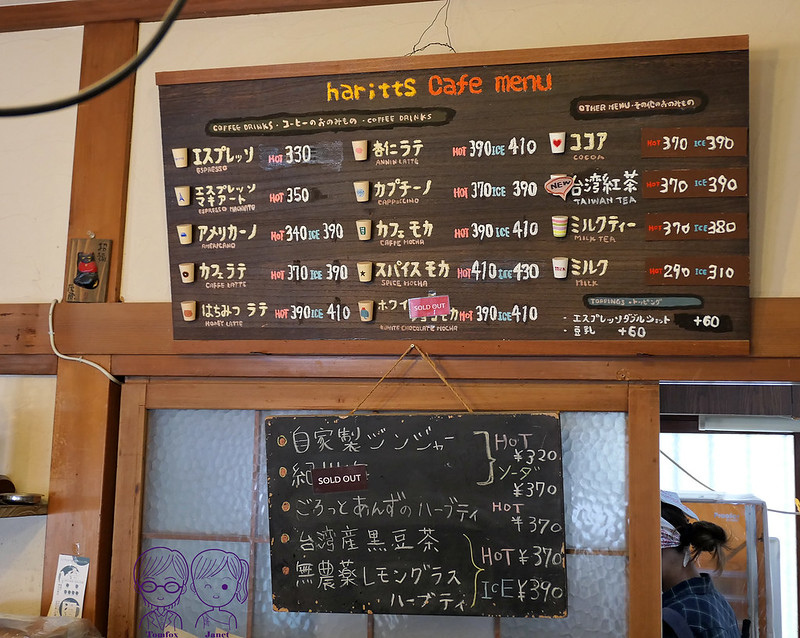 haritts Cafe menu
COFFEE DRINKS・コーヒーのおのみもの・COFFEE DRINKS
エスプレッソ HOT 330
ESPRESSO
エスプレッソ
マキアート HOT 350
ESPRESSO MACHIATO
アメリカーノ HOT 340 ICE 390
AMERICANO
カフェラテ HOT 370 ICE 390
CAFFE LATTE
はちみつ ラテ HOT 390 ICE 410
HONEY LATTE
杏仁ラテ HOT 390 ICE 410
ANNIN LATTE
カプチーノ HOT 370 ICE 390
CAPPUCCINO
カフェ モカ HOT 390 ICE 410
CAFFE MOCHA
スパイス モカ HOT 410 ICE 430
SPICE MOCHA
ホワイ SOLD OUT
モカ HOT 390 ICE 410
WHITE CHOCOLATE MOCHA
OTHER MENU・その他のおのみもの
ココア HOT 370 ICE 390
COCOA
NEW 台湾紅茶 HOT 370 ICE 390
TAIWAN TEA
ミルクティー HOT 370 ICE 380
MILK TEA
ミルク HOT 290 ICE 310
MILK
TOPPINGS・トッピング
・エスプレッソダブルショット +60
・豆乳 +60
自家製ジンジャー HOT ¥320
SOLD OUT ソーダ ¥370
ごろっとあんずのハーブティ HOT ¥370
台湾産黒豆茶 HOT ¥370
無農薬レモングラス ICE ¥390
ハーブティ
Tomfox Janet